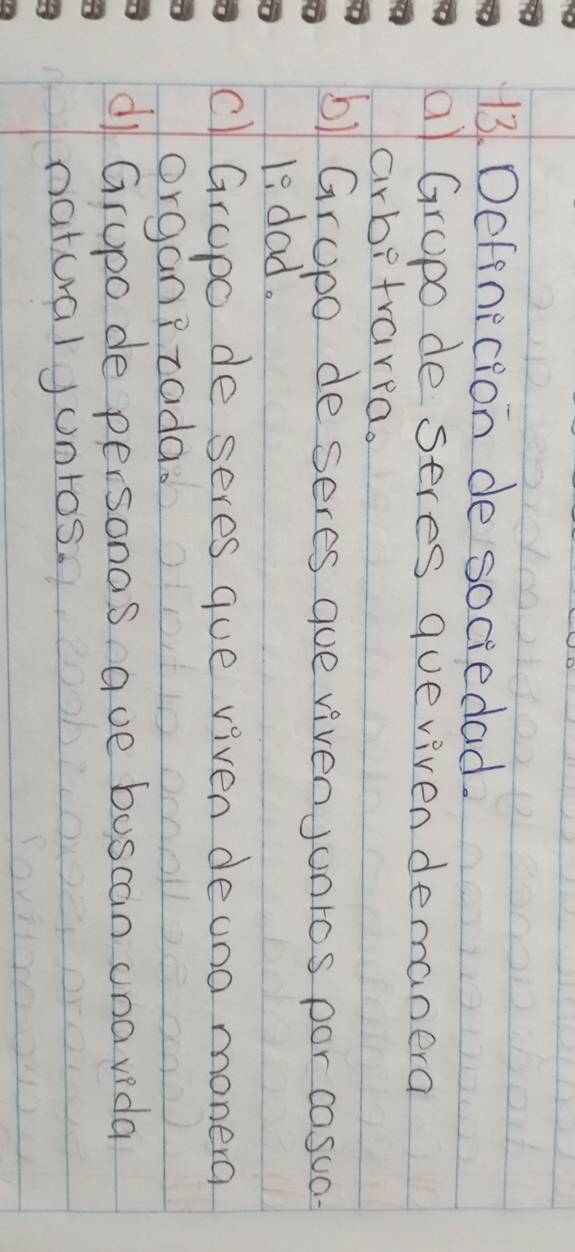 13. Definición de sociedad.
a) Grupo de seres que viven de manera
arbitraria.
b) Grupo de seres que viven juntos por casua-
lidad.
c) Grupo de seres que viven de una manera
organizada.
d) Grupo de personas que buscan una vida
natural juntos.